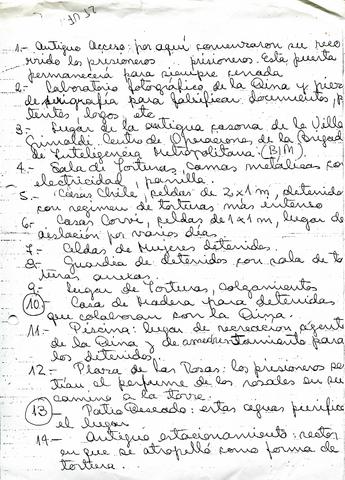 1.- Antiguo Acceso: por aquí comenzaron su reco
rrido los prisioneros prisioneros. Esta puerta
permanecerá para siempre cerrada
2.- Laboratorio fotográfico de la Dina y pieza
de serigrafía para falsificar documentos, p
tentes, logos, etc
3.- Lugar de la antigua casona de la Villa
Grimaldi. Centro de Operaciones de la Brigad
de Inteligencia Metropolitana. (BIM)
4.- Sala de Torturas, camas metálicas con
electricidad, parrilla.
5.- Casas Chile, celdas de 2x1m, detenidos
con regimen de torturas más intenso
6.- Casas Corvi, celdas de 1x1m, lugar de
aislación por varios días.
7.- Celdas de Mujeres detenidas.
8.- Guardia de detenidos con sala de to
turas anexas.
9.- Lugar de Torturas, colgamientos
10.- Casa de Madera para detenidas
que colaboran con la Dina.
11.- Piscina: lugar de recreación agente
de la Dina y de amedrentamiento para
los detenidos
12.- Plaza de las Rosas: los prisioneros se
tían el perfume de los rosales en su
camino a la torre.
13.- Patio Deseado: estas aguas purifica
el lugar
14.- Antiguo estacionamiento: sector
en que se atropelló como forma de
tortura.